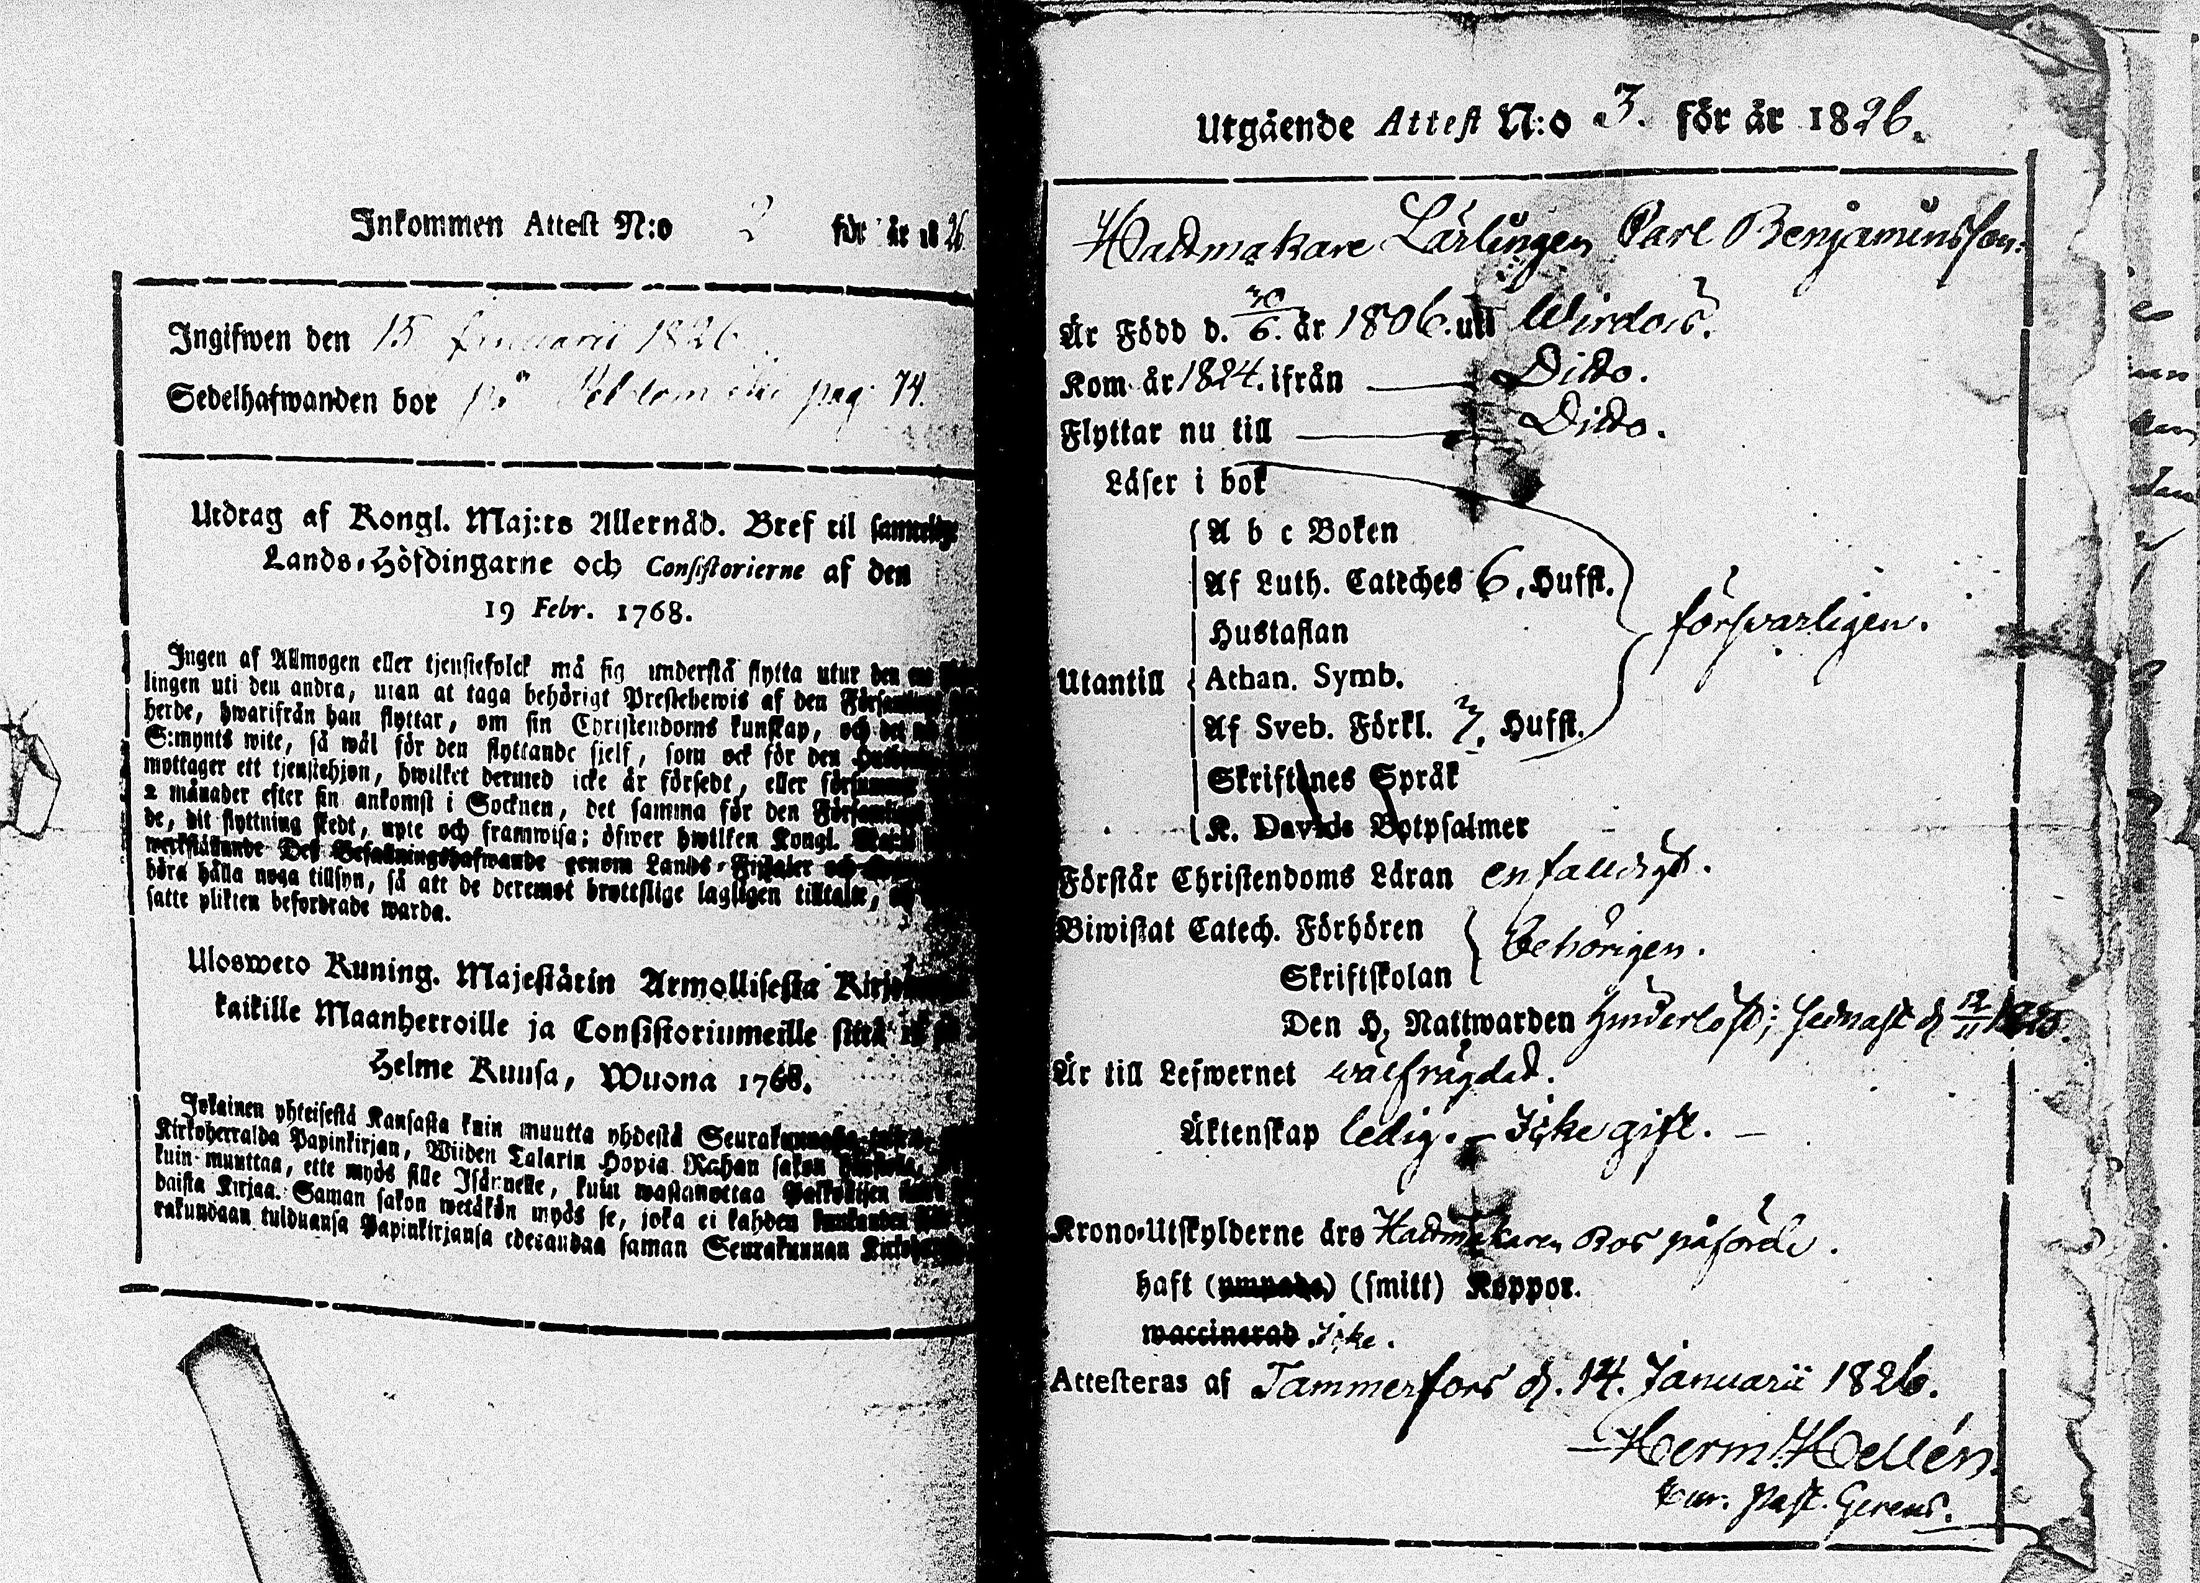 Inkommen Attest N:o 2 för år 1826.
Ingifwen den 15 Januarii 1826
Sedelhafwanden bor på pag. 74.
Utdrag af Kongl. Maj:ts Allernåd. Bref til samtelige
Lands-Höfdingarne och Consistorierne af den
19 Febr. 1768.
Ingen af Allmogen eller tjenstefolck må sig understå flytta utur den ena
lingen uti den andra, utan at taga behörigt Prestebewis af den
herde, hwarifrån han flyttar, om sin Christendoms kunskap, och det
S:mynts wite, så wäl för den flyttande sjelf, som ock för den
mottager ett tjenstehjon, hwilket dermed icke är försedt, eller försummar
2 månader efter sin ankomst i Socknen, det samma för den
de, dit flyttning skedt, upte och framwisa; öfwer hwilken Kongl.
werkställande Des Befallningshafwande genom Lands-Fiskaler och
böra hålla noga tillsyn, så att de deremot brottslige lagligen tilltalte,
satte plikten befordrade warda.
Ulosweto Kuning. Majestätin Armollisesta
kaikille Maanherroille ja Consistoriumeille siitä 19 p:
Helme Kuusa, Wuona 1768.
Jokainen yhteisestä Kansasta kuin muutta yhdestä
Kirkoherralda Papinkirjan, Wiiden Talarin Hopia Rahan sakon
kuin muuttaa, ette myös sille Isännelle, kuin wastanottaa Palkolisen
daista Kirjaa. Saman sakon wetäkön myös se, joka ei kahden kuukauden
rakundaan tulduansa Papinkirjansa edesandaa saman Seurakunnan
Utgående Attest N:o 3. för år 1826.
Hattmakare Lärlingen Carl Benjaminsson.
Är Född d. 30/6. år 1806. uti Wirdois.
Kom år 1824. ifrån Ditto.
Flyttar nu till Ditto.
Läser i bok
A b c Boken
Af Luth. Cateches 6. Hufst.
Hustaflan
försvarligen.
Utantill Athan. Symb.
Af Sveb. Förkl. 7. Hufst.
Skriftenes Språk
K. Davids Botpsalmer
Förstår Christendoms Läran enfalldigt.
Biwistat Catech. Förhören
behörigen.
Skriftskolan
Den H. Nattwarden hinderlöst; sednast d. 12/11 1825.
Är till Lefwernet wälfrägdad.
Äktenskap ledig. – Icke gift. –
Krono-Utskylderne äro Hattmakaren Ros påförde.
haft (ympade) (smitt) Koppor.
waccinerad Icke.
Attesteras af Tammerfors d. 14. Januarii 1826.
Herm. Hellén.
Past. Gerens.